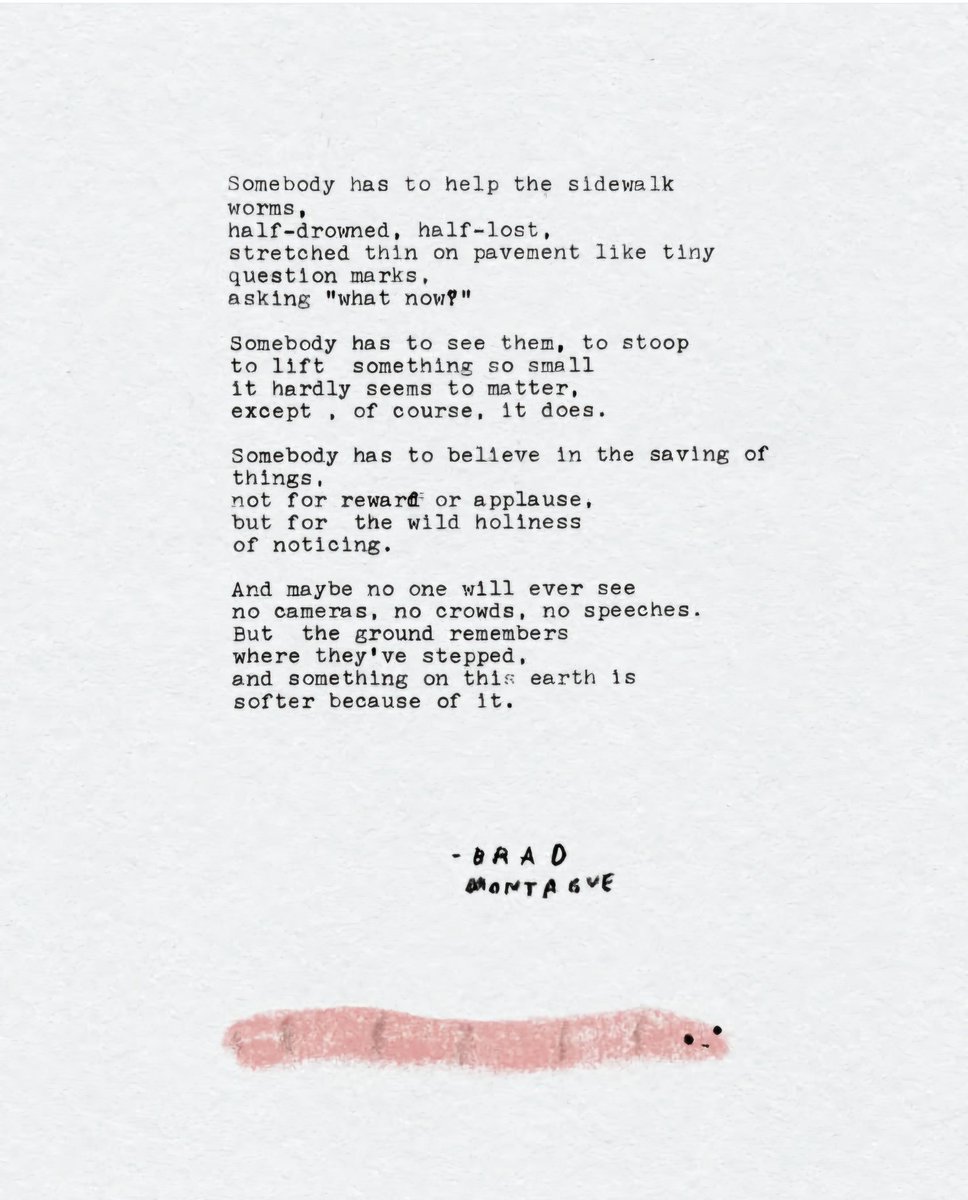 Somebody has to help the sidewalk
worms,
half-drowned, half-lost,
stretched thin on pavement like tiny
question marks,
asking "what now?"
Somebody has to see them, to stoop
to lift  something so small
it hardly seems to matter,
except , of course, it does.
Somebody has to believe in the saving of
things,
not for reward or applause,
but for  the wild holiness
of noticing.
And maybe no one will ever see
no cameras, no crowds, no speeches.
But  the ground remembers
where they've stepped,
and something on this earth is
softer because of it.
- BRAD
MONTAGUE